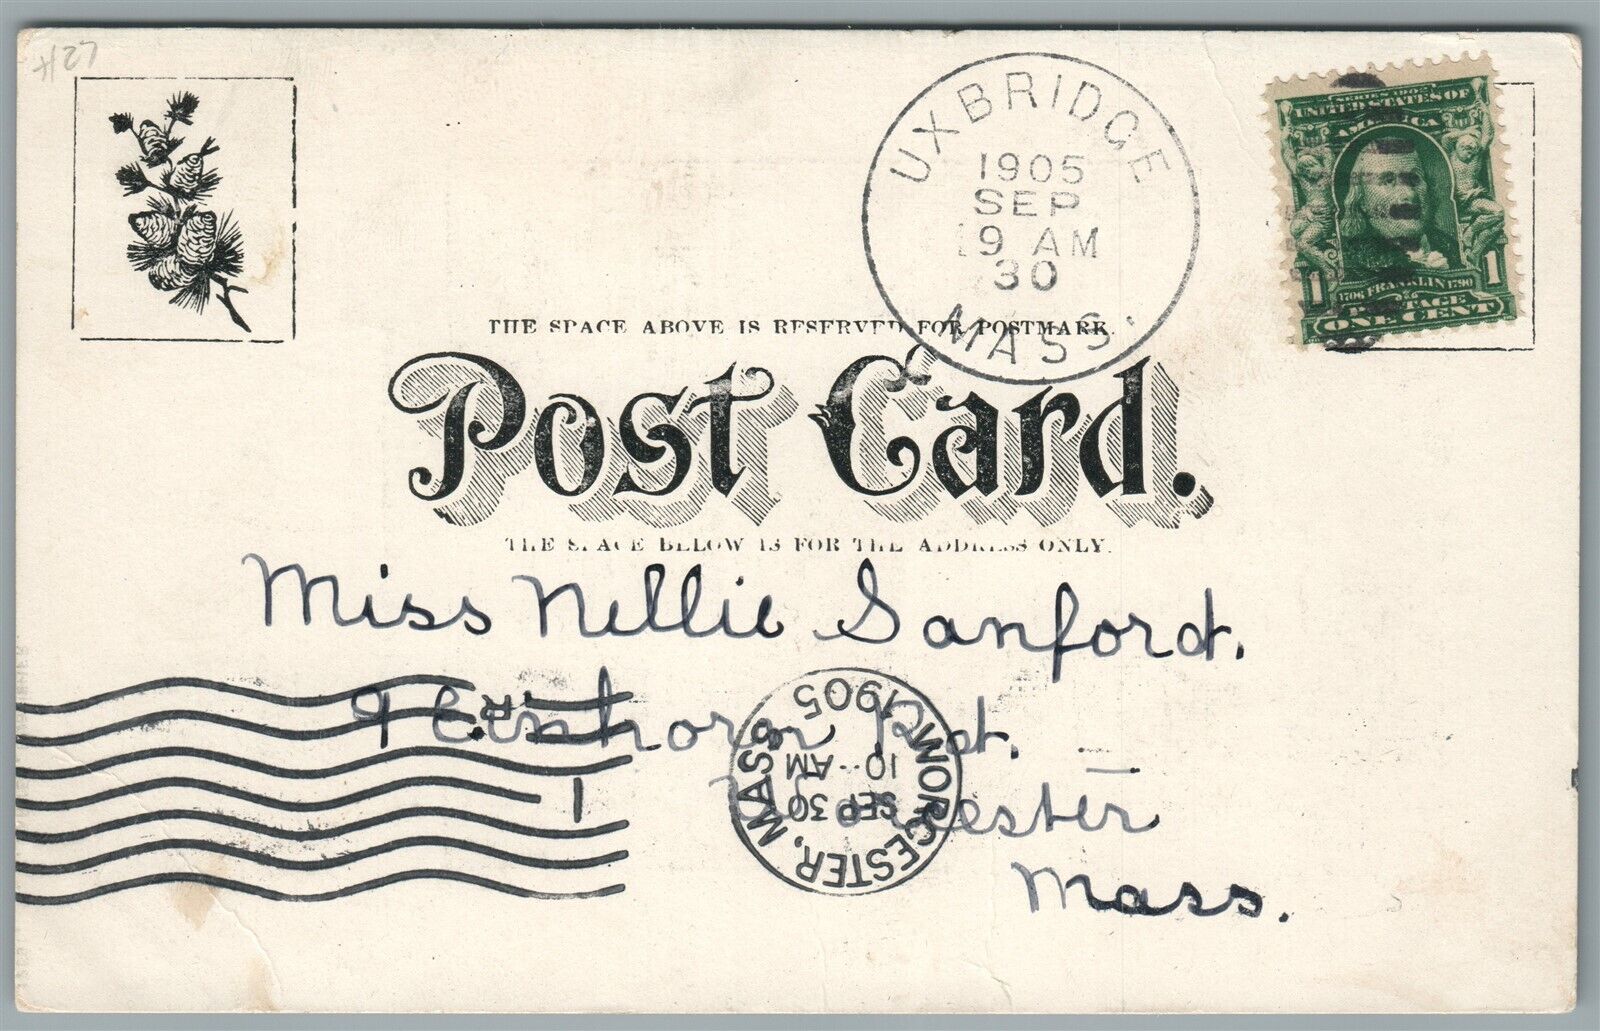 #27
UXBRIDGE
1905
SEP
9 AM
30
MASS.
SERIES 1902
UNITED STATES OF
AMERICA
1706 FRANKLIN 1790
1 POSTAGE 1
ONE CENT
THE SPACE ABOVE IS RESERVED FOR POSTMARK.
Post Card.
THE SPACE BELOW IS FOR THE ADDRESS ONLY.
Miss Nellie Sanford.
9 Einhorn Rd.
Worcester
Mass.
WORCESTER, MASS.
SEP 30
10 AM
1905
R.
1